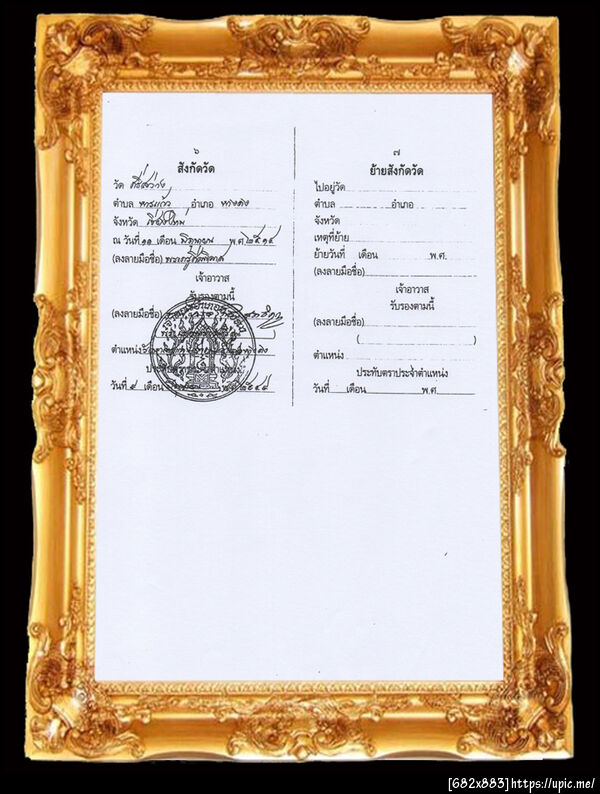 ๖
สังกัดวัด
วัด ศรีสว่าง
ตำบล หารแก้ว อำเภอ หางดง
จังหวัด เชียงใหม่
ณ วันที่ ๑๑ เดือน มิถุนายน พ.ศ. ๒๕๑๕
(ลงลายมือชื่อ)
เจ้าอาวาส
รับรองตามนี้
(ลงลายมือชื่อ)
ตำแหน่ง
ประทับตราประจำตำแหน่ง
วันที่ ๙ เดือน
๗
ย้ายสังกัดวัด
ไปอยู่วัด
ตำบล อำเภอ
จังหวัด
เหตุที่ย้าย
ย้ายวันที่ เดือน พ.ศ.
(ลงลายมือชื่อ)
เจ้าอาวาส
รับรองตามนี้
(ลงลายมือชื่อ)
( )
ตำแหน่ง
ประทับตราประจำตำแหน่ง
วันที่ เดือน พ.ศ.
[682x883]https://upic.me/